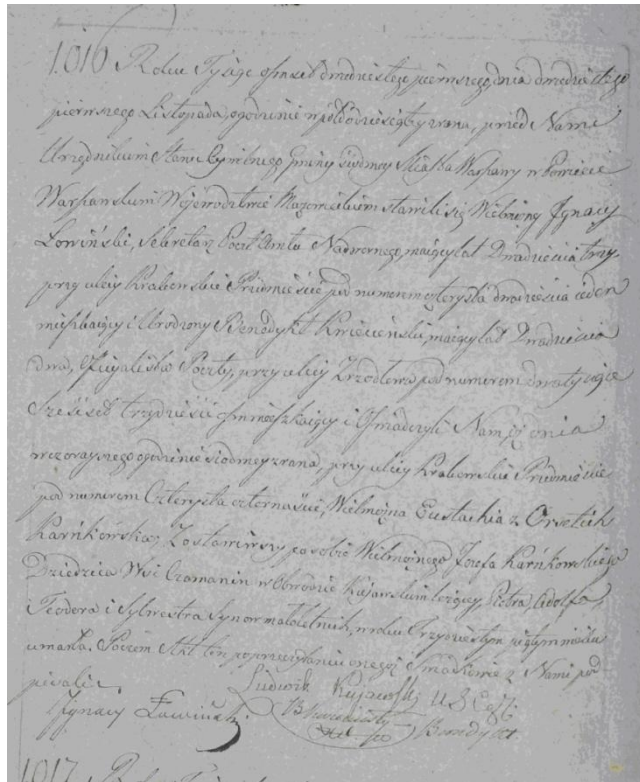 1016 Roku Tysiąc ośmset dwudziestego pierwszego dnia dwudziestego
pierwszego Listopada, o godzinie w pół dziesiątey zrana, przed Nami
Urzędnikiem Stanu Cywilnego Gminy siodmey Miasta Warszawy w Powiecie
Warszawskim Wojewodztwie Mazowieckim stawili się Wielmożny Ignacy
Łowiński, Sekretarz Nadwornego, maiący lat Dwadzieścia trzy
przy ulicy Krakowskie Przedmieście pod numerem czterysta dwadzieścia ieden
mieszkaiący i Urodzony Benedykt Kwieciński, maiący lat Dwadzieścia
dwa, Officyalista Poczty, przy ulicy Zrzodłowa pod numerem dwa tysiące
sześćset trzydzieści ośm mieszkaiący i Oświadczyli Nam iż dnia
wczorayszego o godzinie siodmey zrana, przy ulicy Krakowskie Przedmieście
pod numerem Czterysta czternaście, Wielmożna Eustachia z Orsetich
Karńkowska, Zostawiwszy po sobie Wielmożnego Jozefa Karńkowskiego
Dziedzica Wsi Czamanin w Obwodzie Kujawskim leżącey, Piotra, Adolfa,
Teodora i Sylwestra Synow małoletnich, w roku Trzydziestym piątym wieku
umarła. Poczem Akt ten po przeczytaniu onegoż Świadkowie z Nami pod
pisali
Ludwik
Ignacy Łowiński Benedykt
1017 Roku